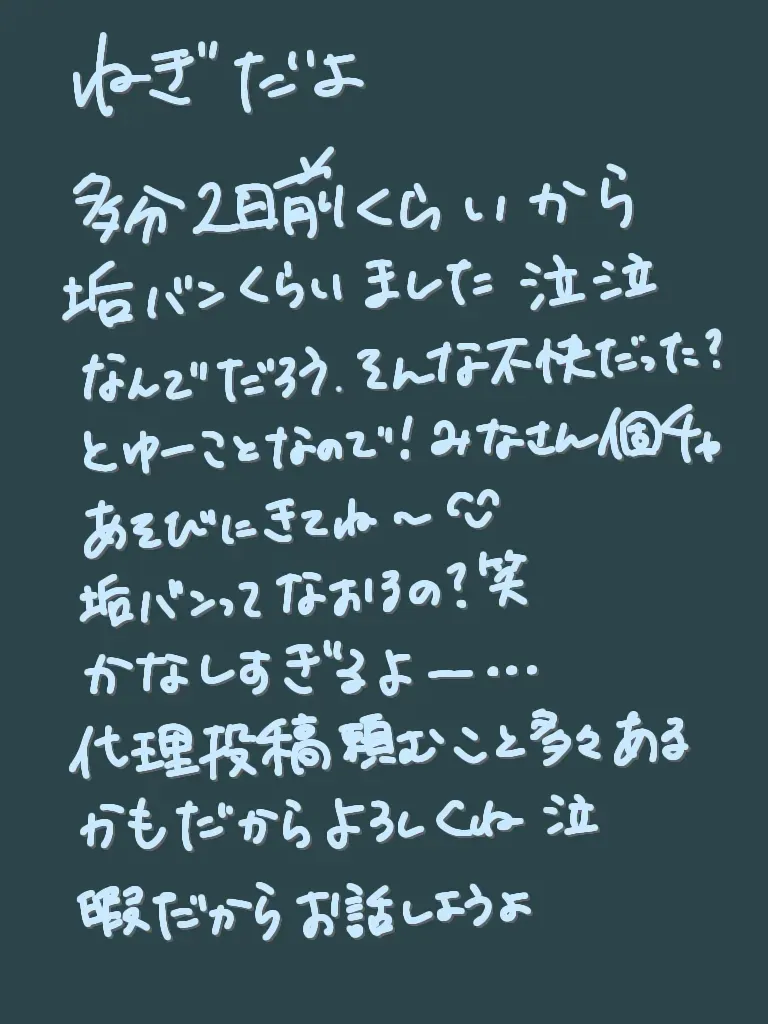 ねぎだよ
多分2日前くらいから
垢バンくらいました 泣泣
なんでだろう.そんな不快だった?
とゆーことなので!みなさん個チャ
あそびにきてね〜
垢バンってなおるの?笑
かなしすぎるよー…
代理投稿頼むこと多々ある
かもだからよろしくね 泣
暇だからお話しようよ